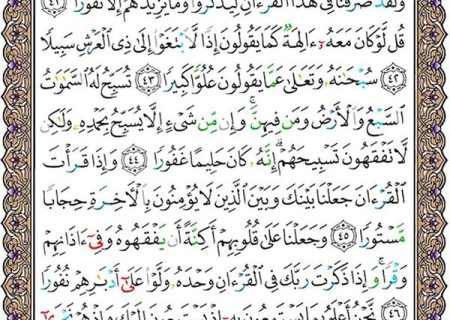 وَلَقَدْ صَرَّفْنَا فِي هَٰذَا الْقُرْءَانِ لِيَذَّكَّرُوا وَمَا يَزِيدُهُمْ إِلَّا نُفُورًا ٤١
قُل لَّوْ كَانَ مَعَهُۥٓ ءَالِهَةٌ كَمَا يَقُولُونَ إِذًا لَّابْتَغَوْا إِلَىٰ ذِي الْعَرْشِ سَبِيلًا
٤٢ سُبْحَٰنَهُۥ وَتَعَٰلَىٰ عَمَّا يَقُولُونَ عُلُوًّا كَبِيرًا ٤٣ تُسَبِّحُ لَهُ السَّمَٰوَٰتُ
السَّبْعُ وَالْأَرْضُ وَمَن فِيهِنَّ ۚ وَإِن مِّن شَيْءٍ إِلَّا يُسَبِّحُ بِحَمْدِهِۦ وَلَٰكِن
لَّا تَفْقَهُونَ تَسْبِيحَهُمْ ۗ إِنَّهُۥ كَانَ حَلِيمًا غَفُورًا ٤٤ وَإِذَا قَرَأْتَ
الْقُرْءَانَ جَعَلْنَا بَيْنَكَ وَبَيْنَ الَّذِينَ لَا يُؤْمِنُونَ بِالْءَاخِرَةِ حِجَابًا
مَّسْتُورًا ٤٥ وَجَعَلْنَا عَلَىٰ قُلُوبِهِمْ أَكِنَّةً أَن يَفْقَهُوهُ وَفِيٓ ءَاذَانِهِمْ
وَقْرًا ۚ وَإِذَا ذَكَرْتَ رَبَّكَ فِي الْقُرْءَانِ وَحْدَهُۥ وَلَّوْا عَلَىٰٓ أَدْبَٰرِهِمْ نُفُورًا
٤٦ نَّحْنُ أَعْلَمُ بِمَا يَسْتَمِعُونَ بِهِۦٓ إِذْ يَسْتَمِعُونَ إِلَيْكَ وَإِذْ هُمْ نَجْوَىٰٓ